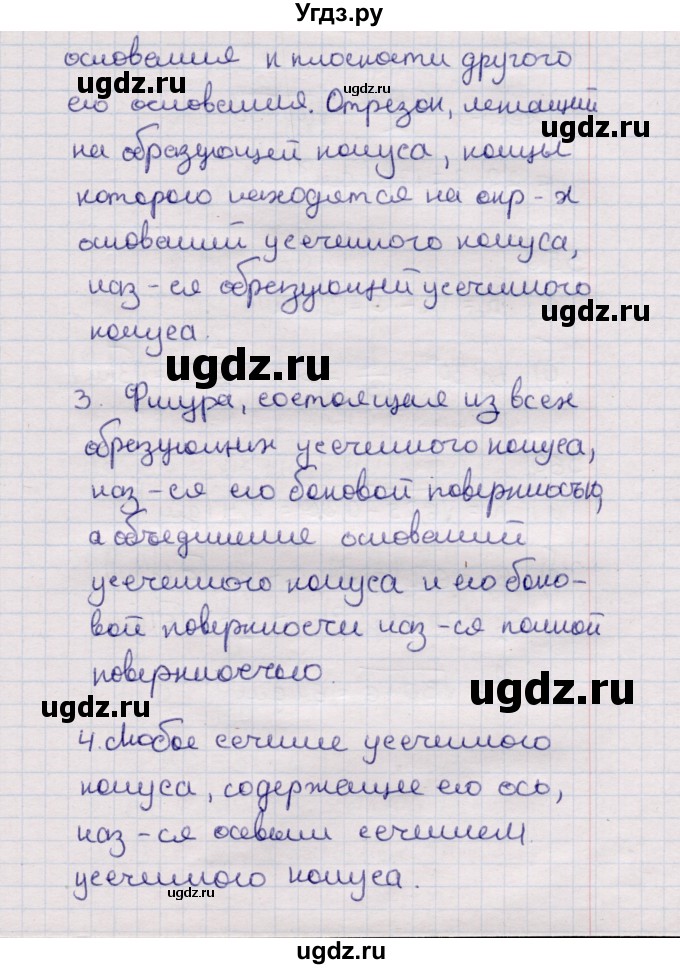 Угдз.ру
основания к плоскости другого
ugdz.ru
ugdz.ru
его основания. Отрезок, лежащий
ugdz.ru
на образующей конуса, концы
которого находятся на окр-х
ugdz.ru
оснований усеченного конуса,
наз-ся образующей усеченного
ugdz.ru
конуса.
ugdz.ru
3. Фигура, состоящая из всех
образующих усеченного конуса,
наз-ся его боковой поверхностью,
а объединение оснований
усеченного конуса и его боко-
вой поверхности наз-ся полной
поверхностью.
ugdz.ru
ugdz.ru
4. Любое сечение усеченного
конуса, содержащее его ось,
наз-ся осевым сечением
усеченного конуса.
ugdz.ru
ugdz.ru